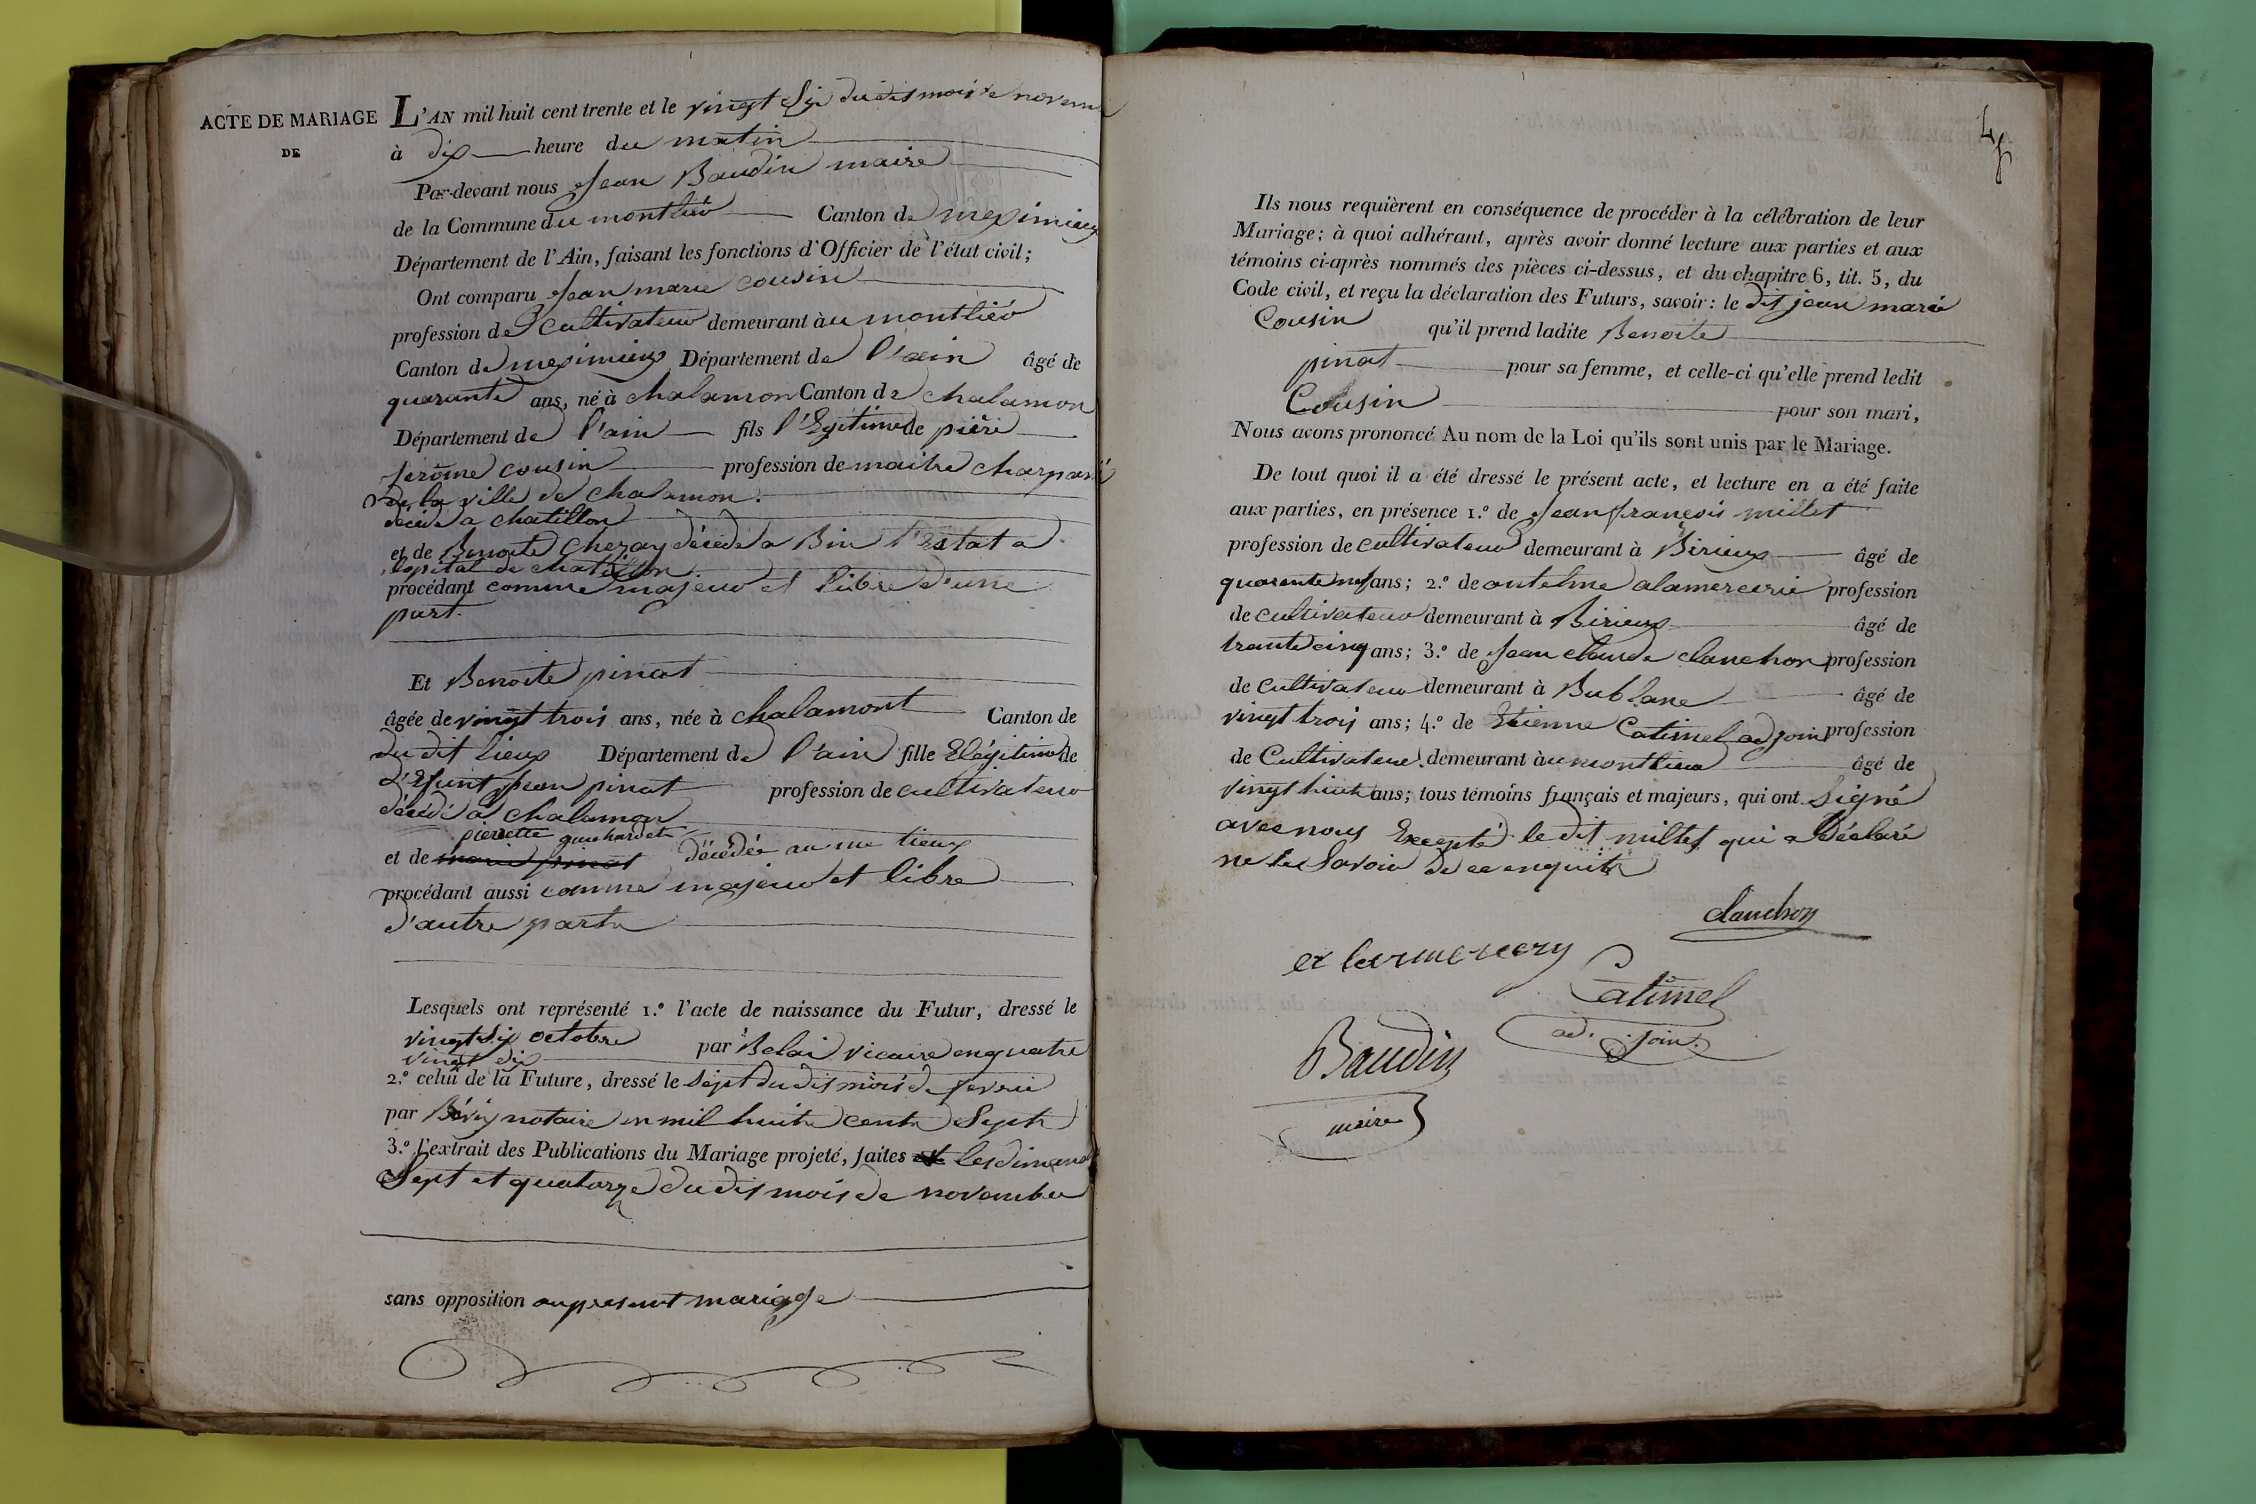 ACTE DE MARIAGE
DE
L'AN mil huit cent trente et le vingt Six du dit mois de novem
à dix heure du matin
Par-devant nous Jean Baudin maire
de la Commune du montliéo Canton de meximieux
Département de l'Ain, faisant les fonctions d'Officier de l'état civil;
Ont comparu Jean marie cousin
profession de Cultivateur demeurant àu montliéo
Canton de meximieux Département de l'ain âgé de
quarante ans, né à chalamon Canton de chalamon
Département de l'ain fils l'Egitime de pièrè
Jerôme cousin profession de maitre charpan
de la ville de chalamon.
décédé a chatillon
et de Benoite décédé a
hopital de chatillon
procédant comme majeur et libre d'une
part.
Et Benoite pinat
âgée de vingt trois ans, née à chalamont Canton de
du dit lieux Département de l'ain fille Elégitime de
D'Efunt Jean pinat profession de cultivateur
décédé a chalamon
pierrette guichardet
et de marie pinat décédée au me lieux
procédant aussi comme majeur et libre
d'autre part
Lesquels ont représenté 1.º l'acte de naissance du Futur, dressé le
vingt Six octobre par Belai vicaire en quatre
vingt dix
2.º celui de la Future, dressé le Sept du dit mois de fevrié
par notaire en mil huit cent Sept
3.º l'extrait des Publications du Mariage projeté, faites les dimanc
Sept et quatorze du dit mois de novembre
sans opposition au present mariage
Ils nous requièrent en conséquence de procéder à la célébration de leur
Mariage; à quoi adhérant, après avoir donné lecture aux parties et aux
témoins ci-après nommés des pièces ci-dessus, et du chapitre 6, tit. 5, du
Code civil, et reçu la déclaration des Futurs, savoir: le dit jean marie
Cousin qu'il prend ladite Benoite
pinat pour sa femme, et celle-ci qu'elle prend ledit
Cousin pour son mari,
Nous avons prononcé Au nom de la Loi qu'ils sont unis par le Mariage.
De tout quoi il a été dressé le présent acte, et lecture en a été faite
aux parties, en présence 1.º de Jean françois millet
profession de cultivateur demeurant à Birieux âgé de
quarente neuf ans; 2.º de antelme alamercerie profession
de cultivateur demeurant à Birieux âgé de
trante cinq ans; 3.º de Jean claude clanchon profession
de Cultivateur demeurant à Bublane âgé de
vingt trois ans; 4.º de Etienne Catimel adjoin profession
de Cultivateur demeurant àu montlieo âgé de
vingt huit ans; tous témoins français et majeurs, qui ont Signé
avec nous Excepté le dit millet qui a Déclaré
ne le Savoir de ce enquit
clanchon
Catimel
ad. join.
Baudin
maire